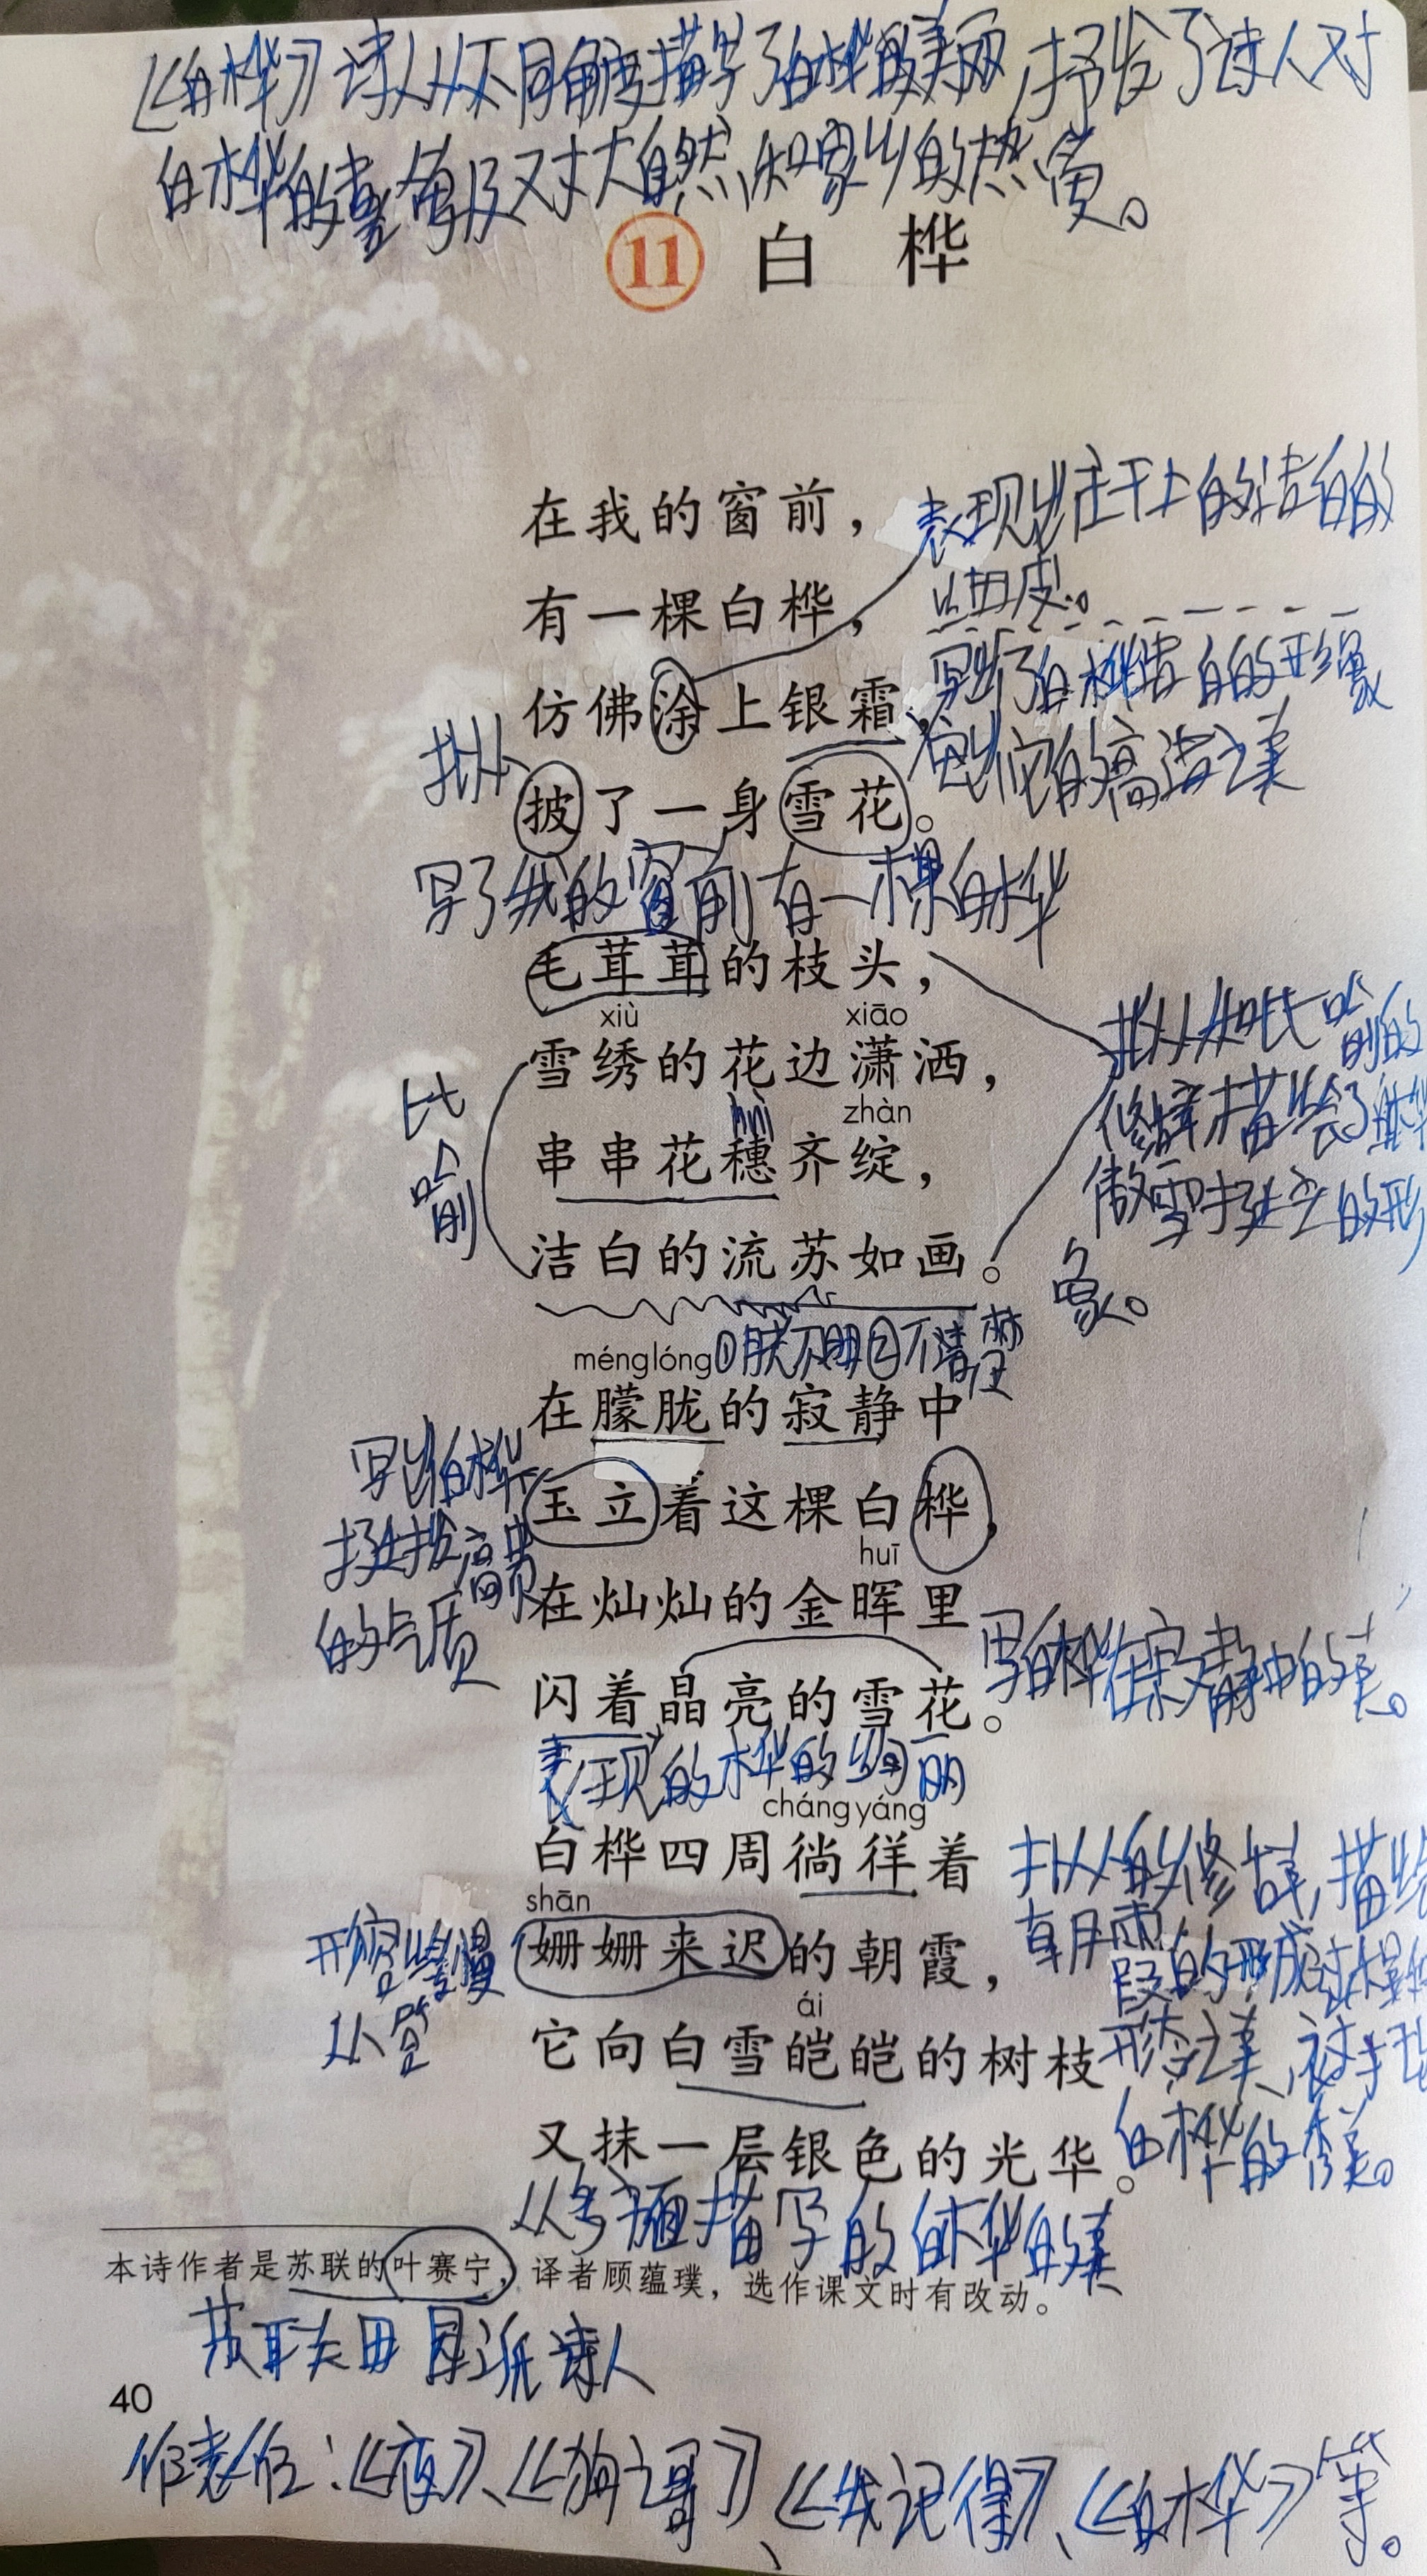 《白桦》诗人从不同角度描写了白桦的美丽,抒发了诗人对
白桦的喜爱及对大自然和家乡的热爱。
11 白桦
在我的窗前,
表现出主干上的洁白的
有一棵白桦,
树皮。
仿佛涂上银霜,
写出了白桦洁白的形象
拟人
披了一身雪花。
它的高洁之美
写了我的窗前有一棵白桦
毛茸茸的枝头,
xiù xiāo
雪绣的花边潇洒,
拟人和比喻的
比喻
zhàn
串串花穗齐绽,
傲雪挺立的形
洁白的流苏如画。
象。
ménglóng ①月光不明②不清楚
在朦胧的寂静中
写出白桦
挺拔高贵
的气质
玉立着这棵白桦,
huī
在灿灿的金晖里
写白桦在寂静中的美。
闪着晶亮的雪花。
表现的桦的绚丽
chángyáng
白桦四周徜徉着
拟人的修辞,描绘
shān
姗姗来迟的朝霞,
朝霞的形成过程
形容
从容
ái
它向白雪皑皑的树枝
形态之美,衬托
又抹一层银色的光华。
白桦的秀美。
从多方面描写的白桦的美
本诗作者是苏联的叶赛宁,译者顾蕴璞,选作课文时有改动。
苏联田园派诗人
40
代表作:《夜》、《狗之哥》、《我记得》、《白桦》等。